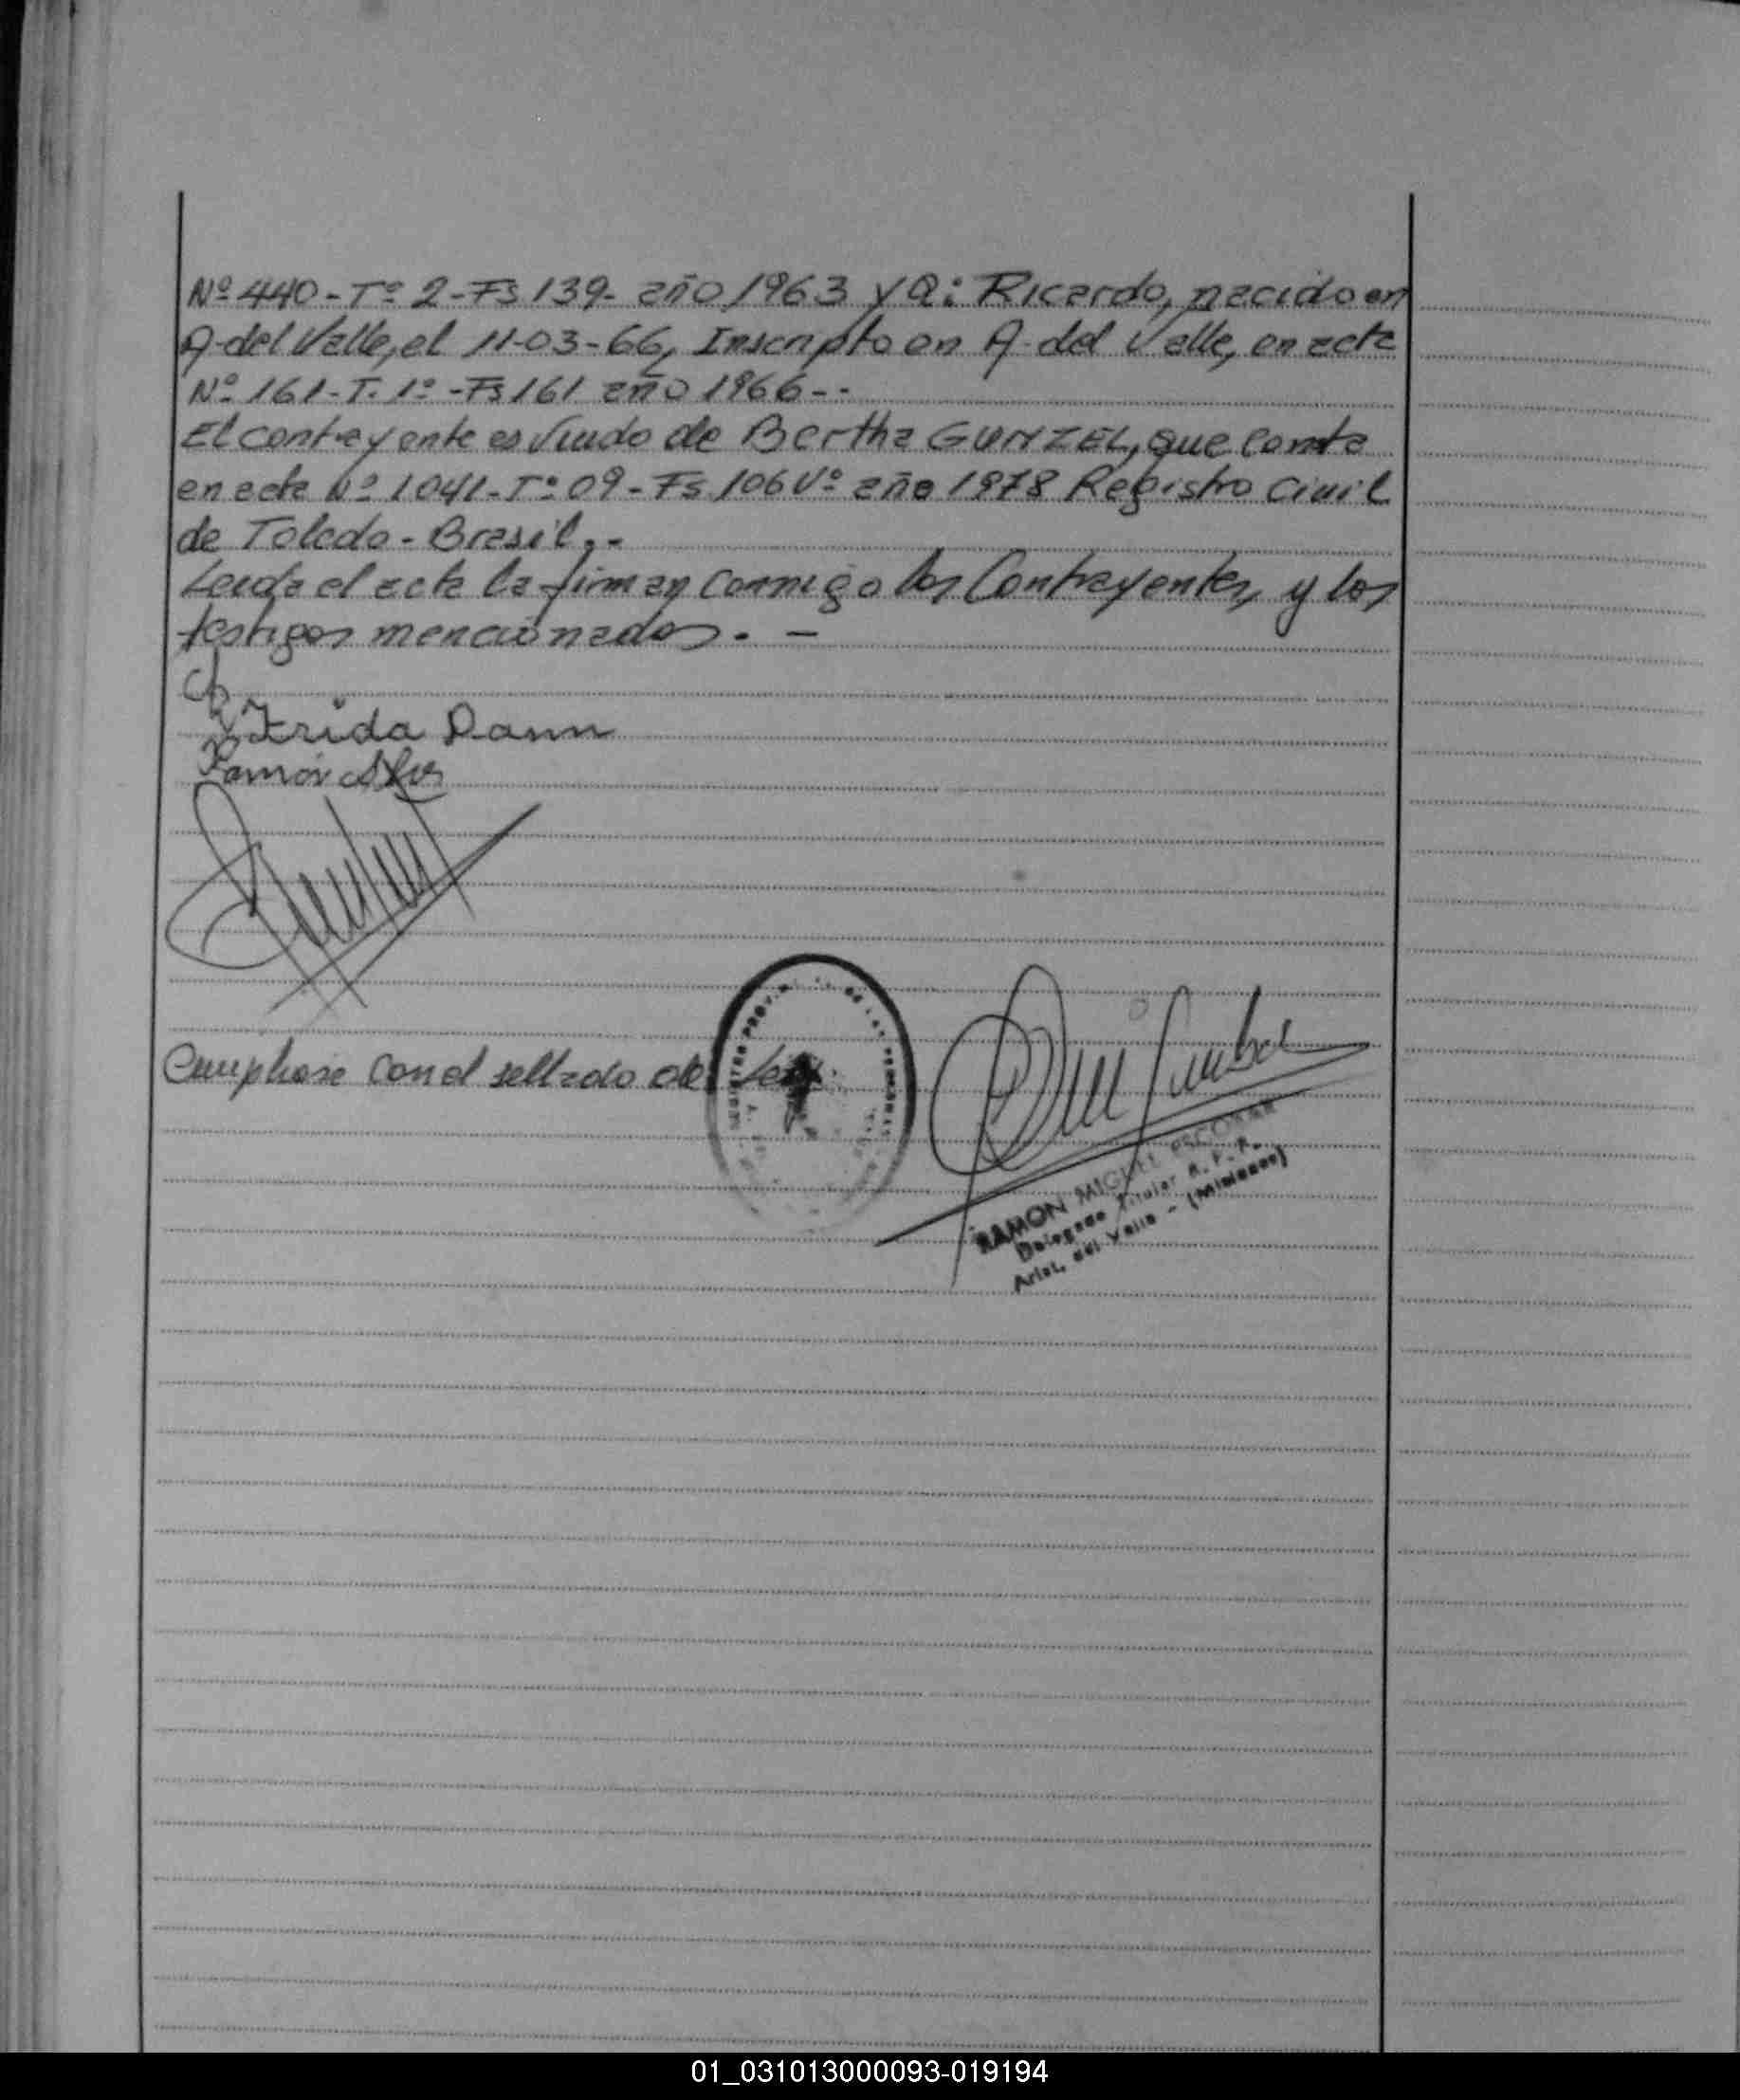 Nº 440 - Tº 2 - Fs 139 - año 1963 y a: Ricardo, nacido en
A. del Valle, el 11-03-66, Inscripto en A. del Valle, en acta
Nº 161 - T. 1º - Fs 161 año 1966 - -
El contrayente es viudo de Bertha GUNZEL, que consta
en acta Nº 1041 - Tº 09 - Fs 106 Vº año 1978 Registro Civil
de Toledo - Brasil. -
Leida el acta la firman conmigo los Contrayentes, y los
testigos mencionados. -
Frida Dann
Ramón
Cumplase con el sellado de Ley.
RAMON MIGUEL ESCOBAR
Delegado Titular R. P. P.
Arist. del Valle - (Misiones)
01_031013000093-019194